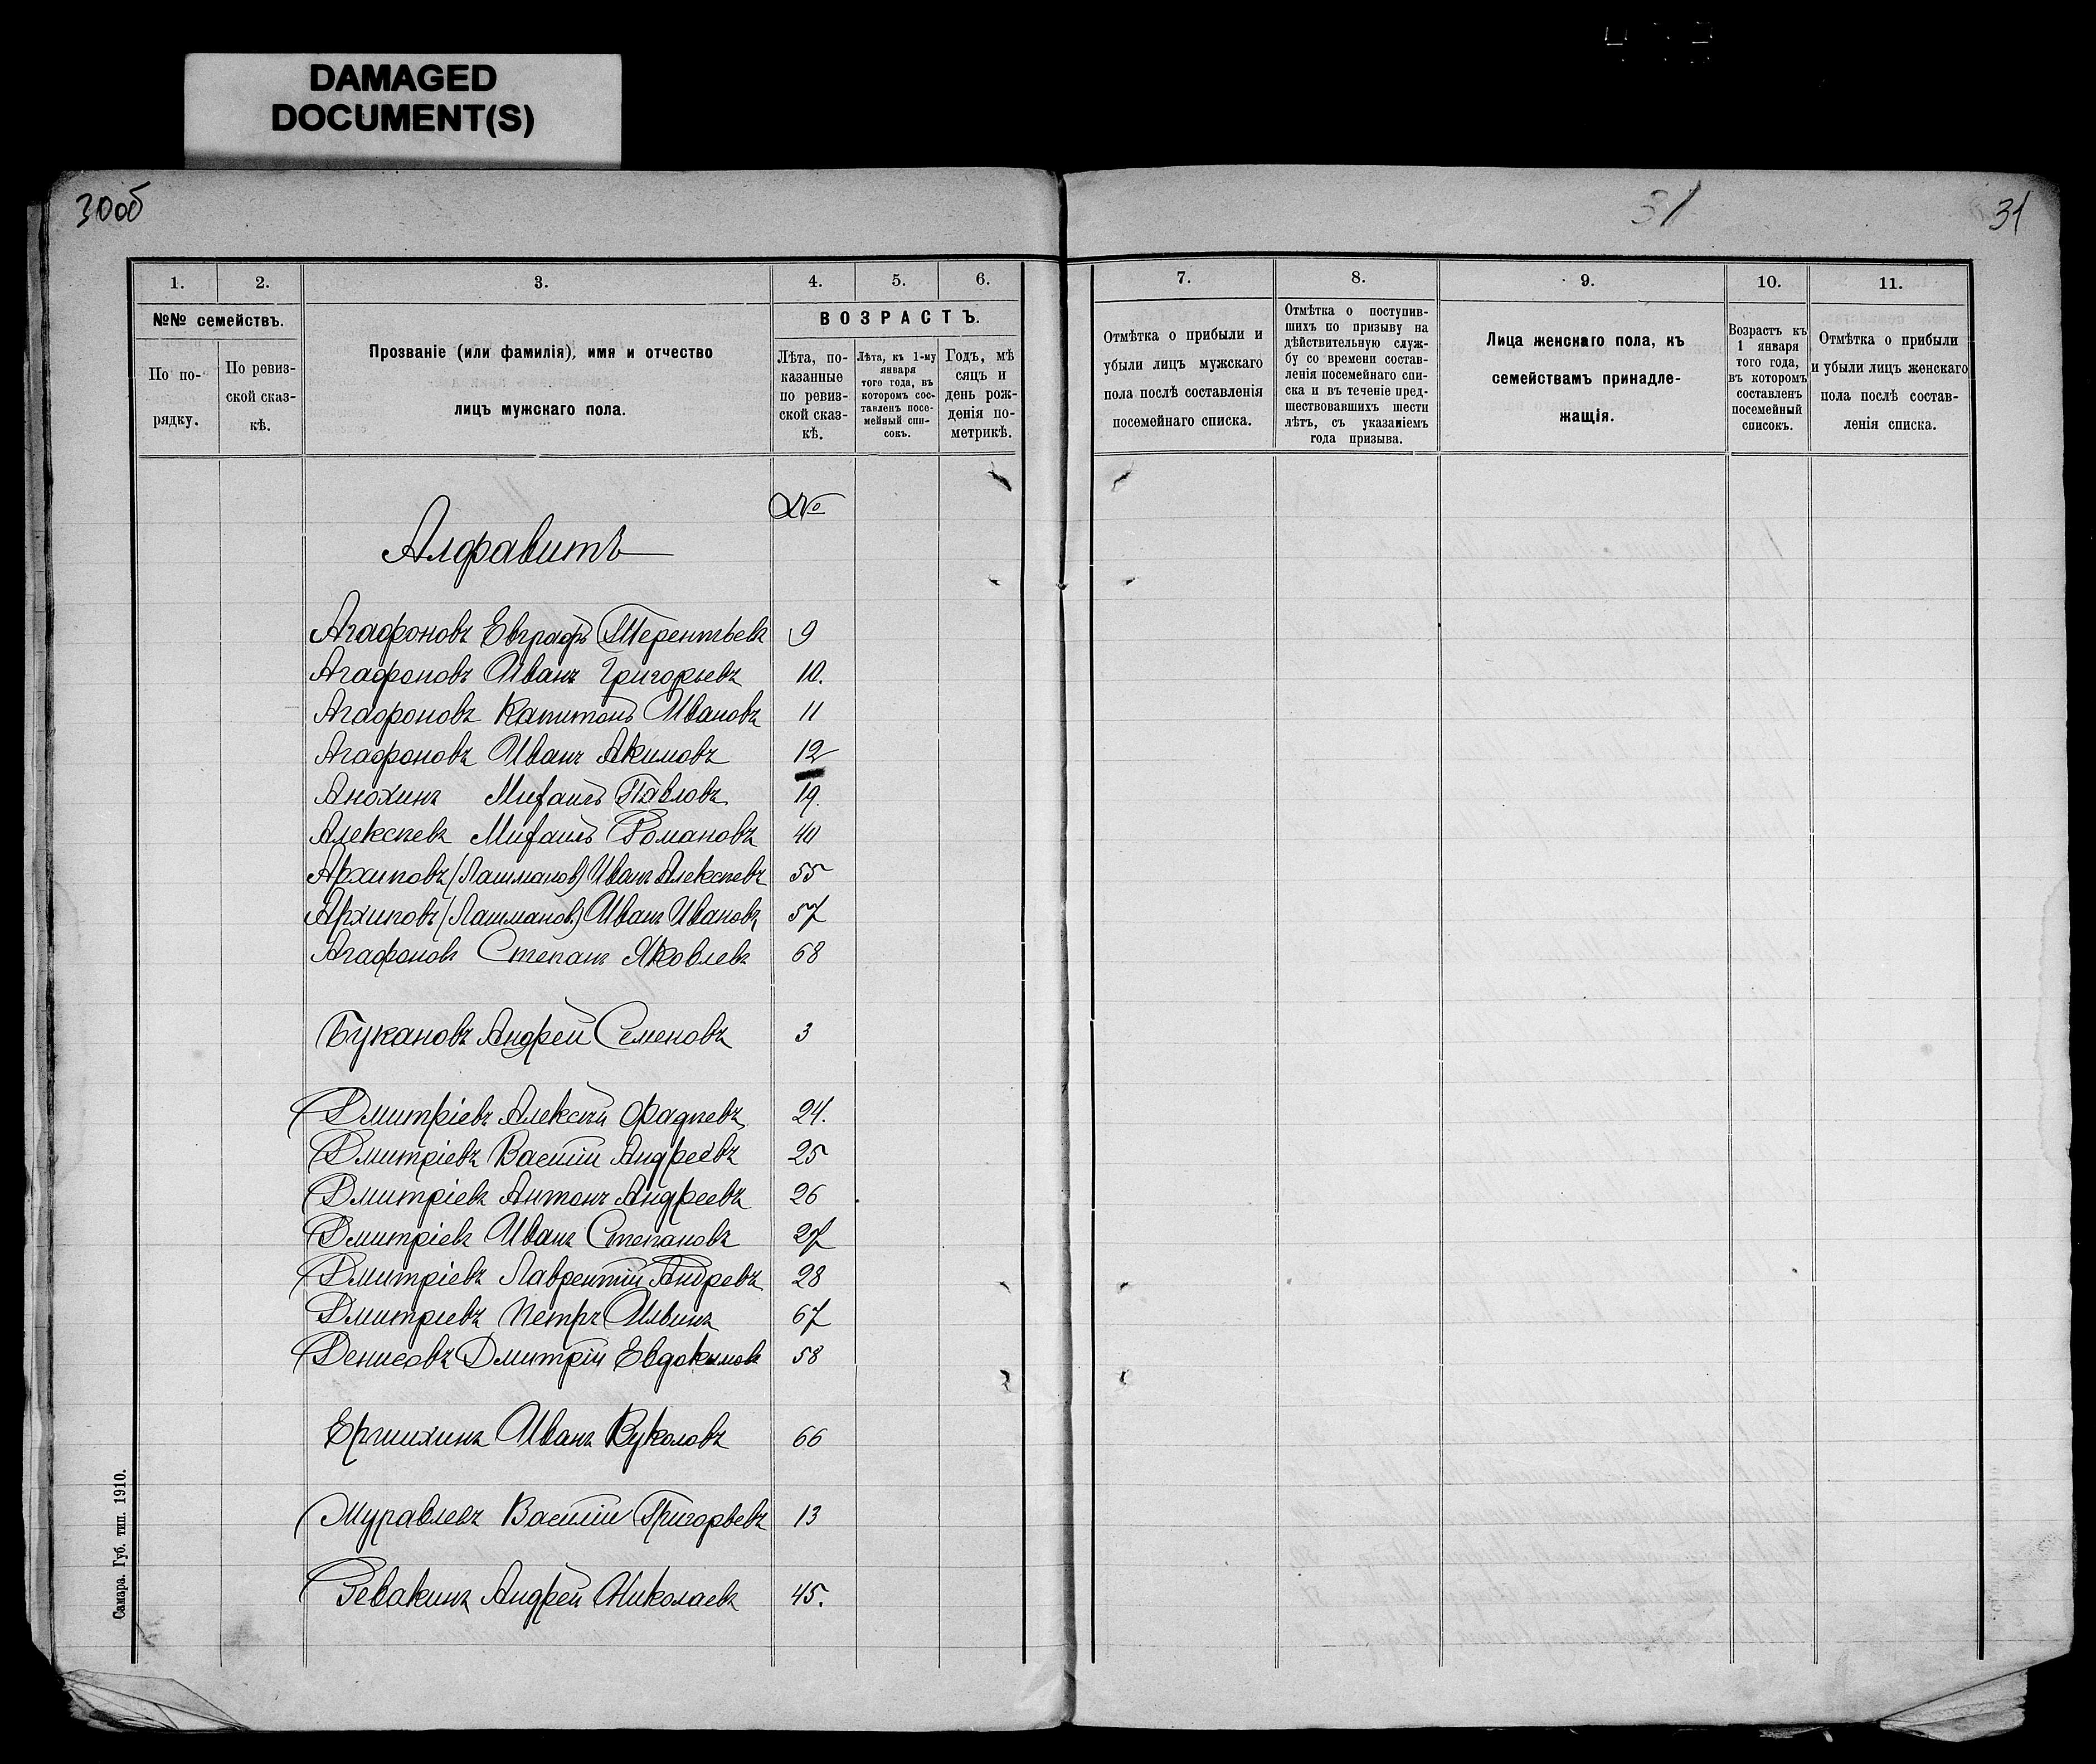 DAMAGED
DOCUMENT(S)
30об
31
31
1.
2.
3.
4.
5.
6.
№№ семействъ.
По по-
рядку.
По ревиз-
ской сказ-
кѣ.
Прозваніе (или фамилія), имя и отчество
лицъ мужскаго пола.
ВОЗРАСТЪ.
Лѣта, по-
казанные
по ревиз-
ской сказ-
кѣ.
Лѣта, къ 1-му
января
того года, въ
которомъ сос-
тавленъ посе-
мейный спи-
сокъ.
Годъ, мѣ
сяцъ и
день рож-
денія по-
метрикѣ.
7.
8.
9.
10.
11.
Отмѣтка о прибыли и
убыли лицъ мужскаго
пола послѣ составленія
посемейнаго списка.
Отмѣтка о поступив-
шихъ по призыву на
дѣйствительную служ-
бу со времени состав-
ленія посемейнаго спи-
ска и въ теченіе пред-
шествовавшихъ шести
лѣтъ, съ указаніемъ
года призыва.
Лица женскаго пола, къ
семействамъ принадле-
жащія.
Возрастъ къ
1 января
того года,
въ которомъ
составленъ
посемейный
списокъ.
Отмѣтка о прибыли
и убыли лицъ женскаго
пола послѣ состав-
ленія списка.
№
Алфавитъ
Агафоновъ Евграфъ Терентьевъ 9
Агафоновъ Иванъ Григорьевъ 10.
Агафоновъ Капитонъ Ивановъ 11
Агафоновъ Иванъ Акимовъ 12
Анохинъ Михаилъ Павловъ 19.
Алексѣевъ Михаилъ Романовъ 40
Архиповъ (Лашмановъ) Иванъ Алексѣевъ 55
Архиповъ (Лашмановъ) Иванъ Ивановъ 57
Агафоновъ Степанъ Яковлевъ 68
Букановъ Андрей Семеновъ 3
Дмитріевъ Алексѣй Фадѣевъ 24.
Дмитріевъ Василій Андреевъ 25
Дмитріевъ Антонъ Андреевъ 26
Дмитріевъ Иванъ Степановъ 27
Дмитріевъ Лаврентій Андревъ 28
Дмитріевъ Петръ Ильинъ 67
Денисовъ Дмитрій Евдокимовъ 58
Иванъ Вуколовъ 66
Журавлевъ Василій Григорьевъ 13
Зевакинъ Андрей Николаевъ 45.
Самара. Губ. тип. 1910.